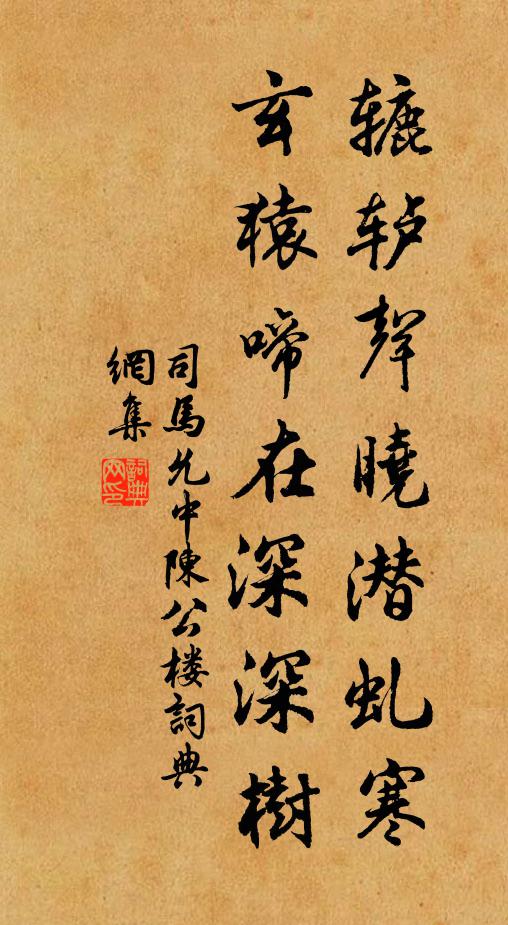 辘轳聲曉潜虬寒
玄猿啼在深深樹
司馬允中陳公楼詞典
網集
詞典
网印